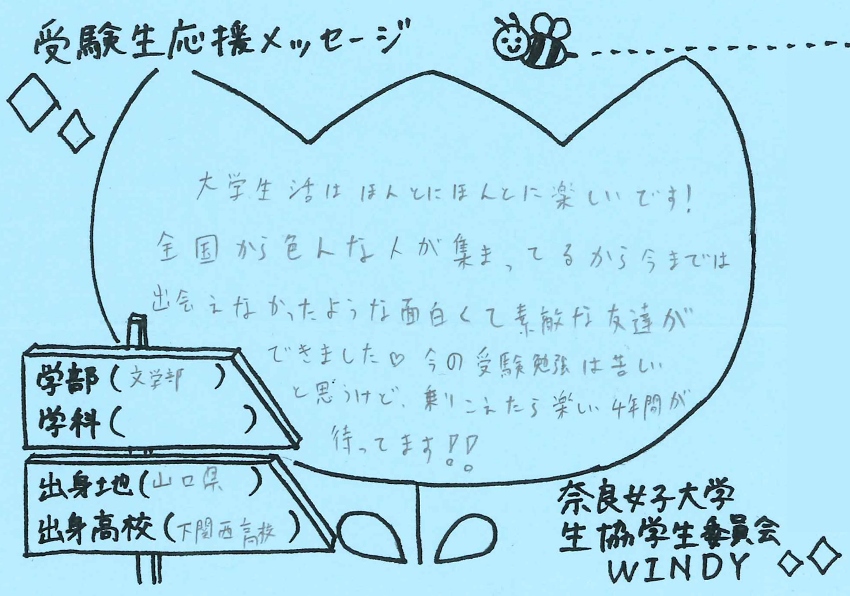 受験生応援メッセージ
大学生活はほんとにほんとに楽しいです!
全国から色んな人が集まってるから今までは
出会えなかったような面白くて素敵な友達が
できました♡ 今の受験勉強は苦しい
と思うけど、乗りこえたら楽しい4年間が
待ってます!!
学部(文学部)
学科( )
出身地(山口県)
出身高校(下関西高校)
奈良女子大学
生協学生委員会
WINDY